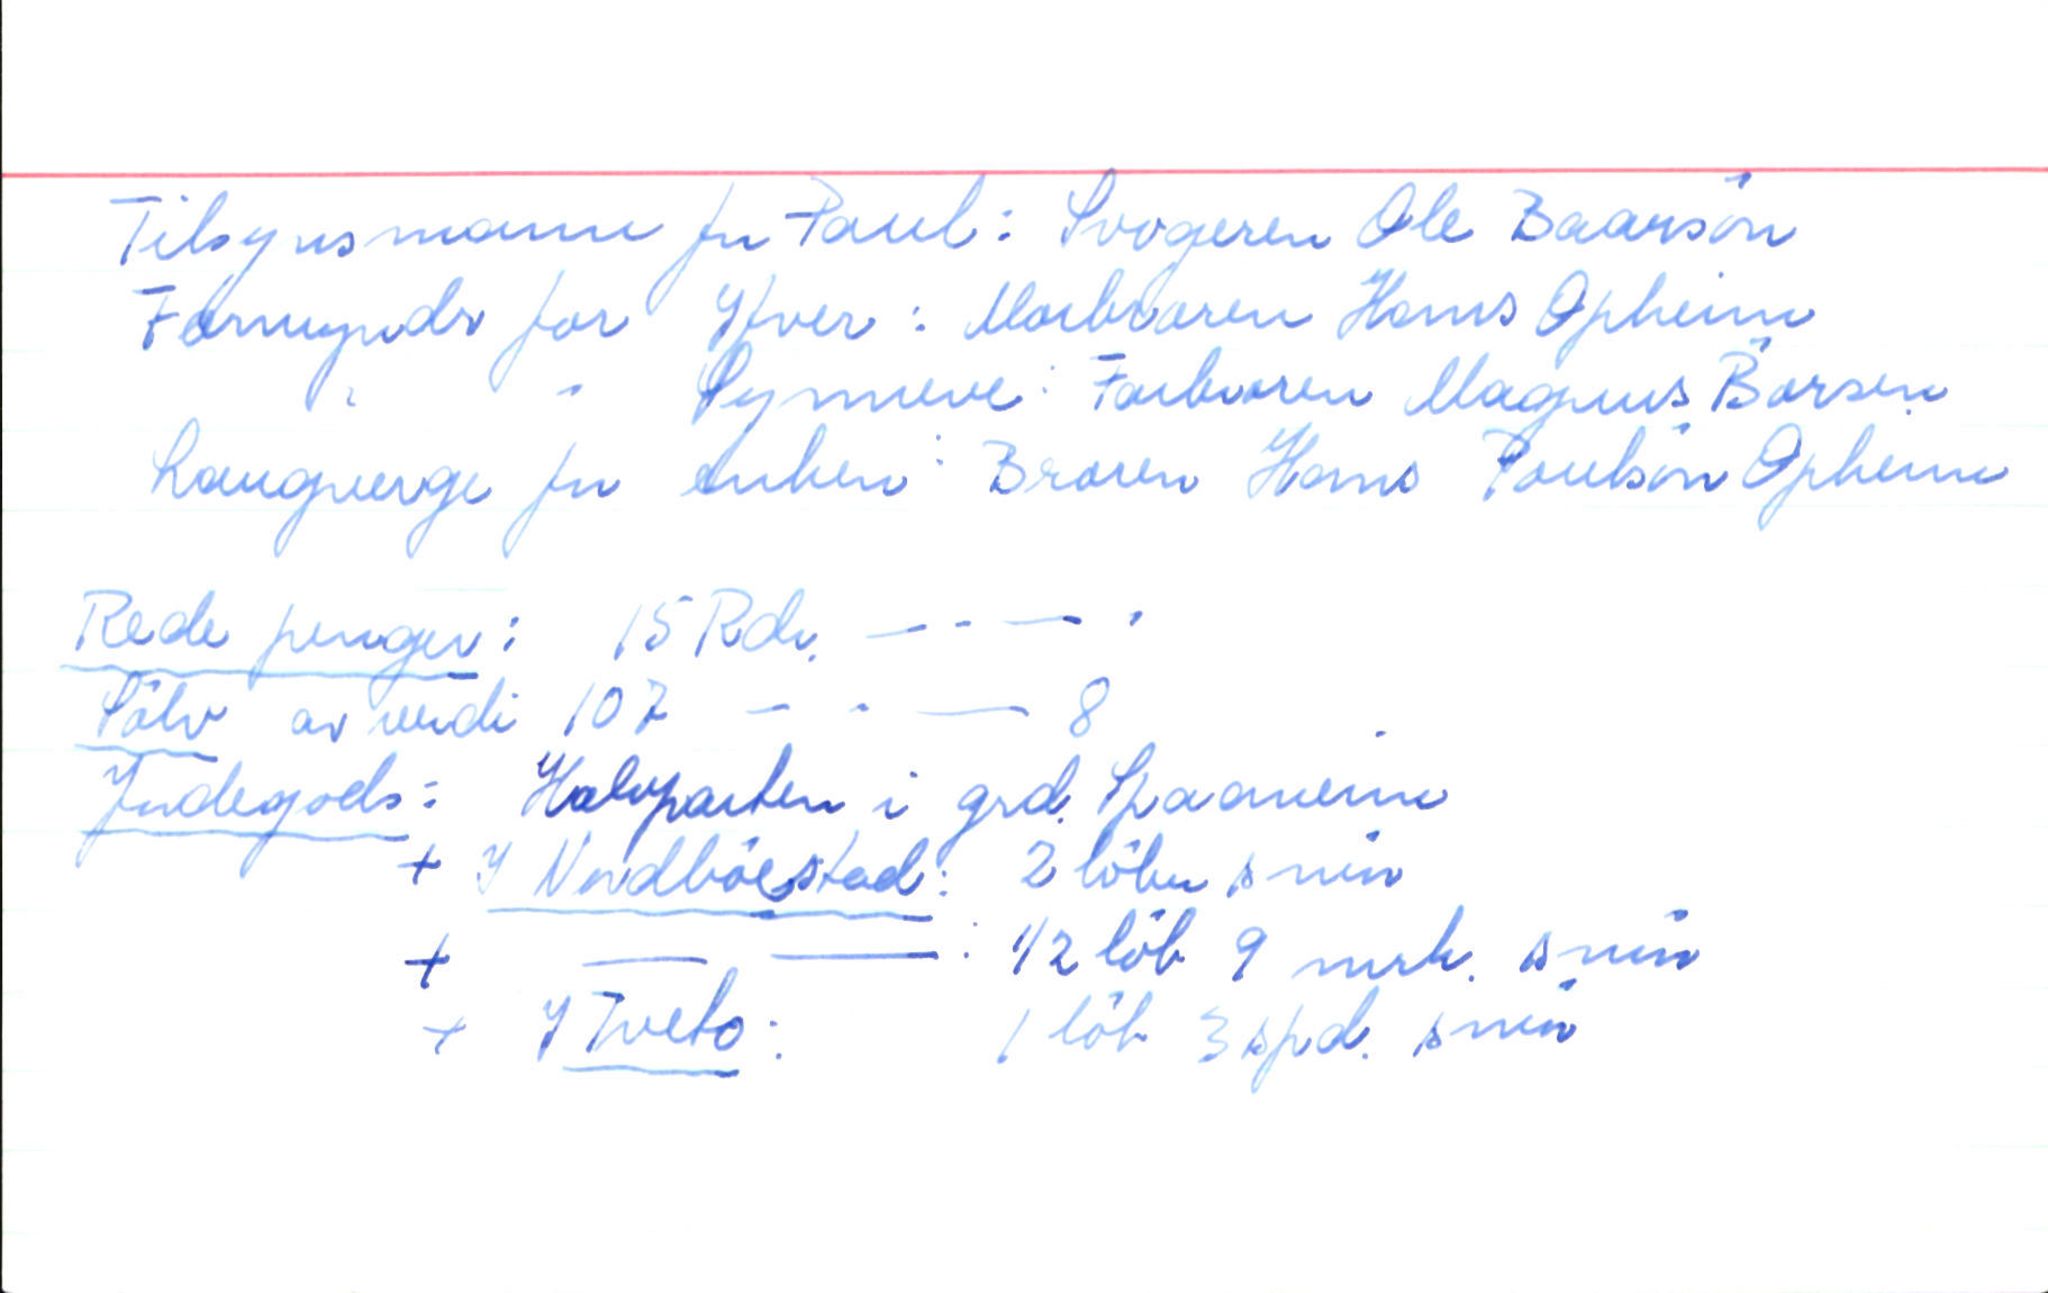 Tilsynsmann for Paul: Svogeren Ole Baarsön
Formyndr for Yfver: Morbroren Hans Opheim
" " Synneve: Farbroren Magnus Börsen
Laugverge for enken: Broren Hans Poulsön Opheim
Rede penger: 15 Rdr. — - — .
Sölv av verdi 107 - - — 8
Jndegods: Halvparten i grd. Spaaneim
+ Y Nordböestad: 2 löber smör
+ — —: 1/2 löb 9 mrk. smör
+ Y Tveto: 1 löb 3 spd. smör